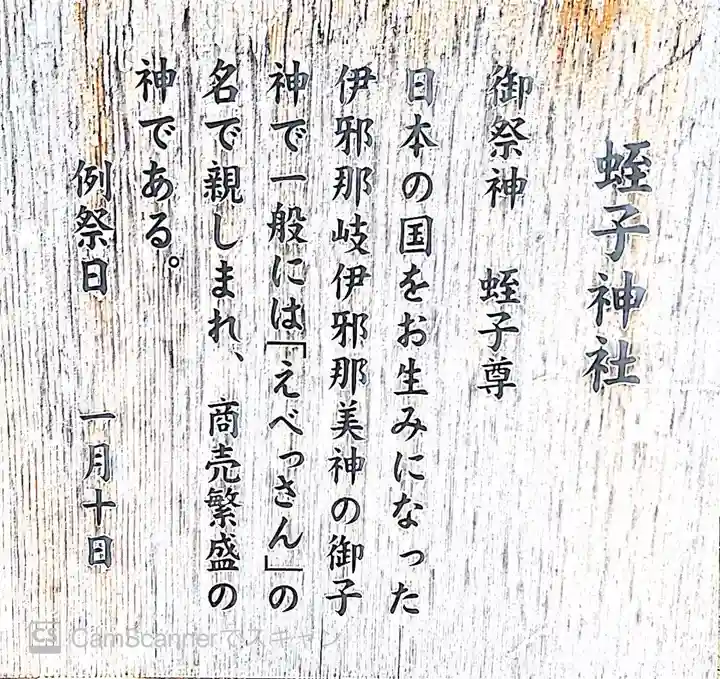 蛭子神社
御祭神 蛭子尊
日本の国をお生みになった
伊邪那岐伊邪那美神の御子
神で一般には「えべっさん」の
名で親しまれ、商売繁盛の
神である。
例祭日 一月十日
CS CamScannerでスキャン